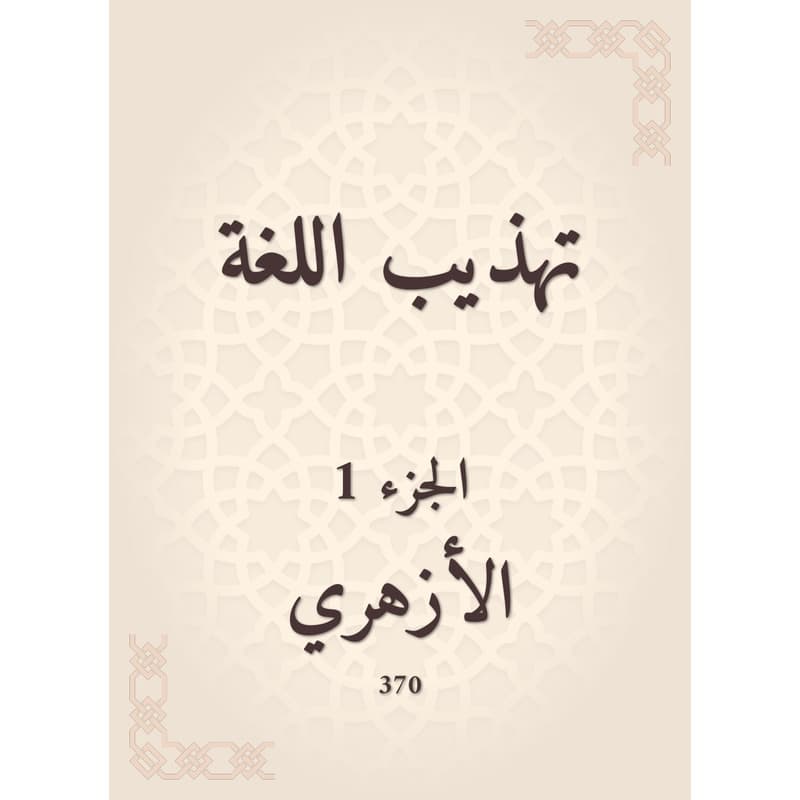 تهذيب اللغة
الجزء 1
الأزهري
370